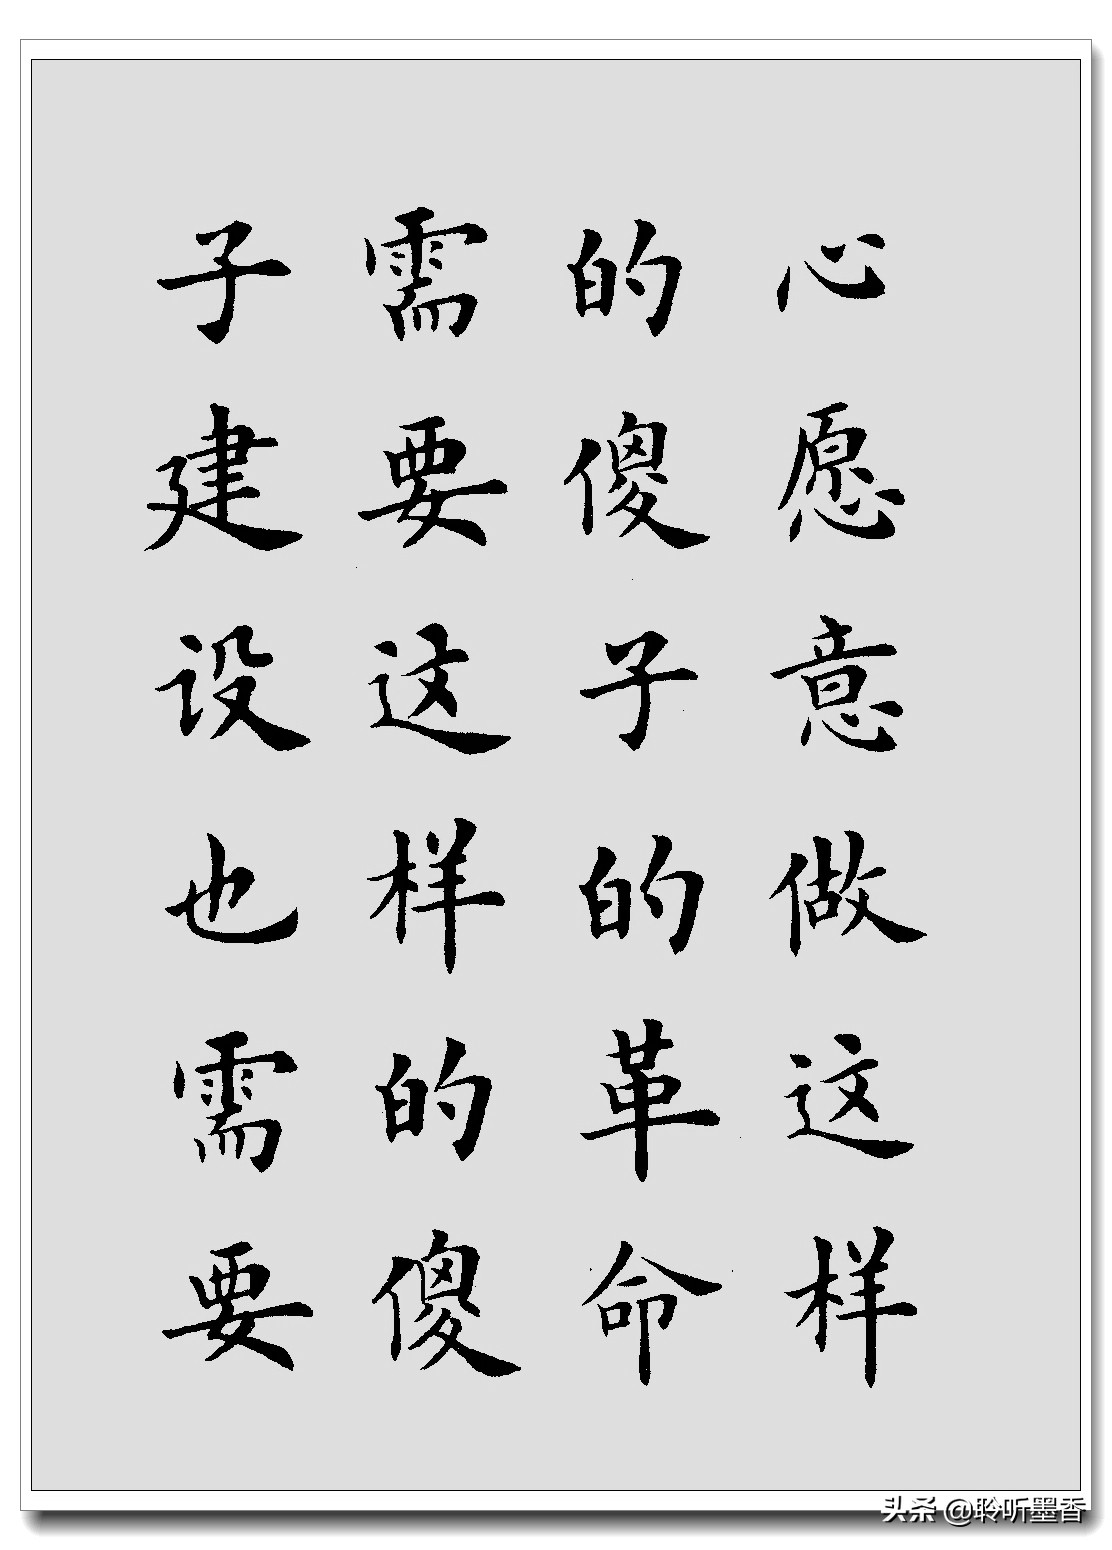 心愿意做这样
的傻子的革命
需要这样的傻
子建设也需要
头条 @聆听墨香